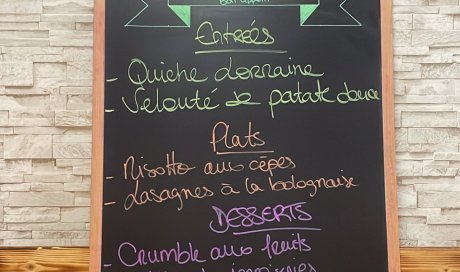 Bon appétit
Entrées
- Quiche Lorraine
- Velouté de patate douce
Plats
- Risotto aux cèpes
- Lasagnes à la bolognaise
DESSERTS
- Crumble aux fruits